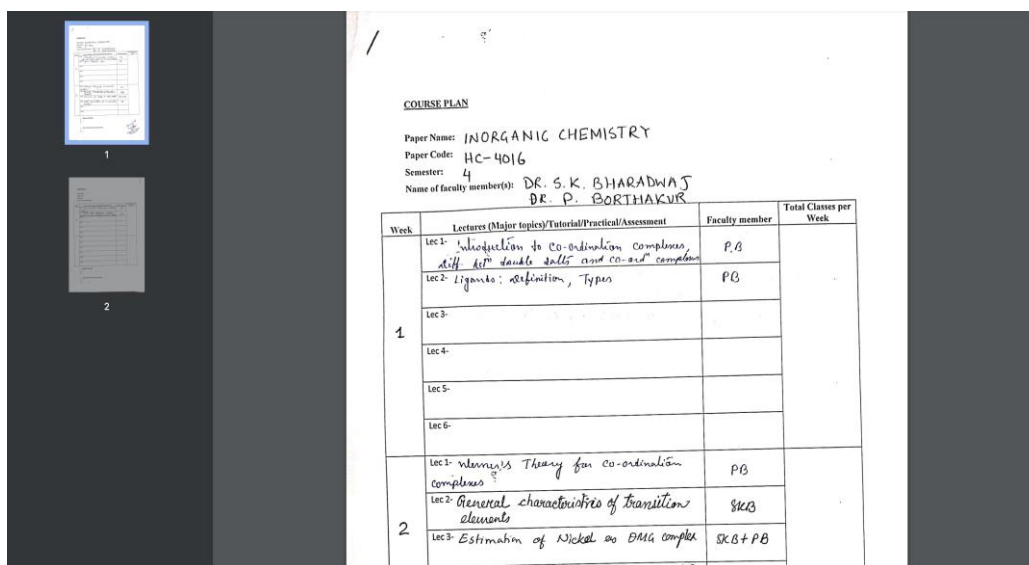 COURSE PLAN
Paper Name: INORGANIC CHEMISTRY
Paper Code: HC-4016
Semester: 4
Name of faculty member(s): DR. S. K. BHARADWAJ
DR. P. BORTHAKUR
Week Lectures (Major topics)/Tutorial/Practical/Assessment Faculty member Total Classes per Week
1
Lec 1- Introduction to co-ordination complexes, P.B
diff. betn double salts and co-ordn complexes
Lec 2- Ligands: Definition, Types PB
Lec 3-
Lec 4-
Lec 5-
Lec 6-
2
Lec 1- Werner's Theory for co-ordination PB
complexes
Lec 2- General characteristics of transition SKB
elements
Lec 3- Estimation of Nickel as DMG complex SKB + PB
1
2